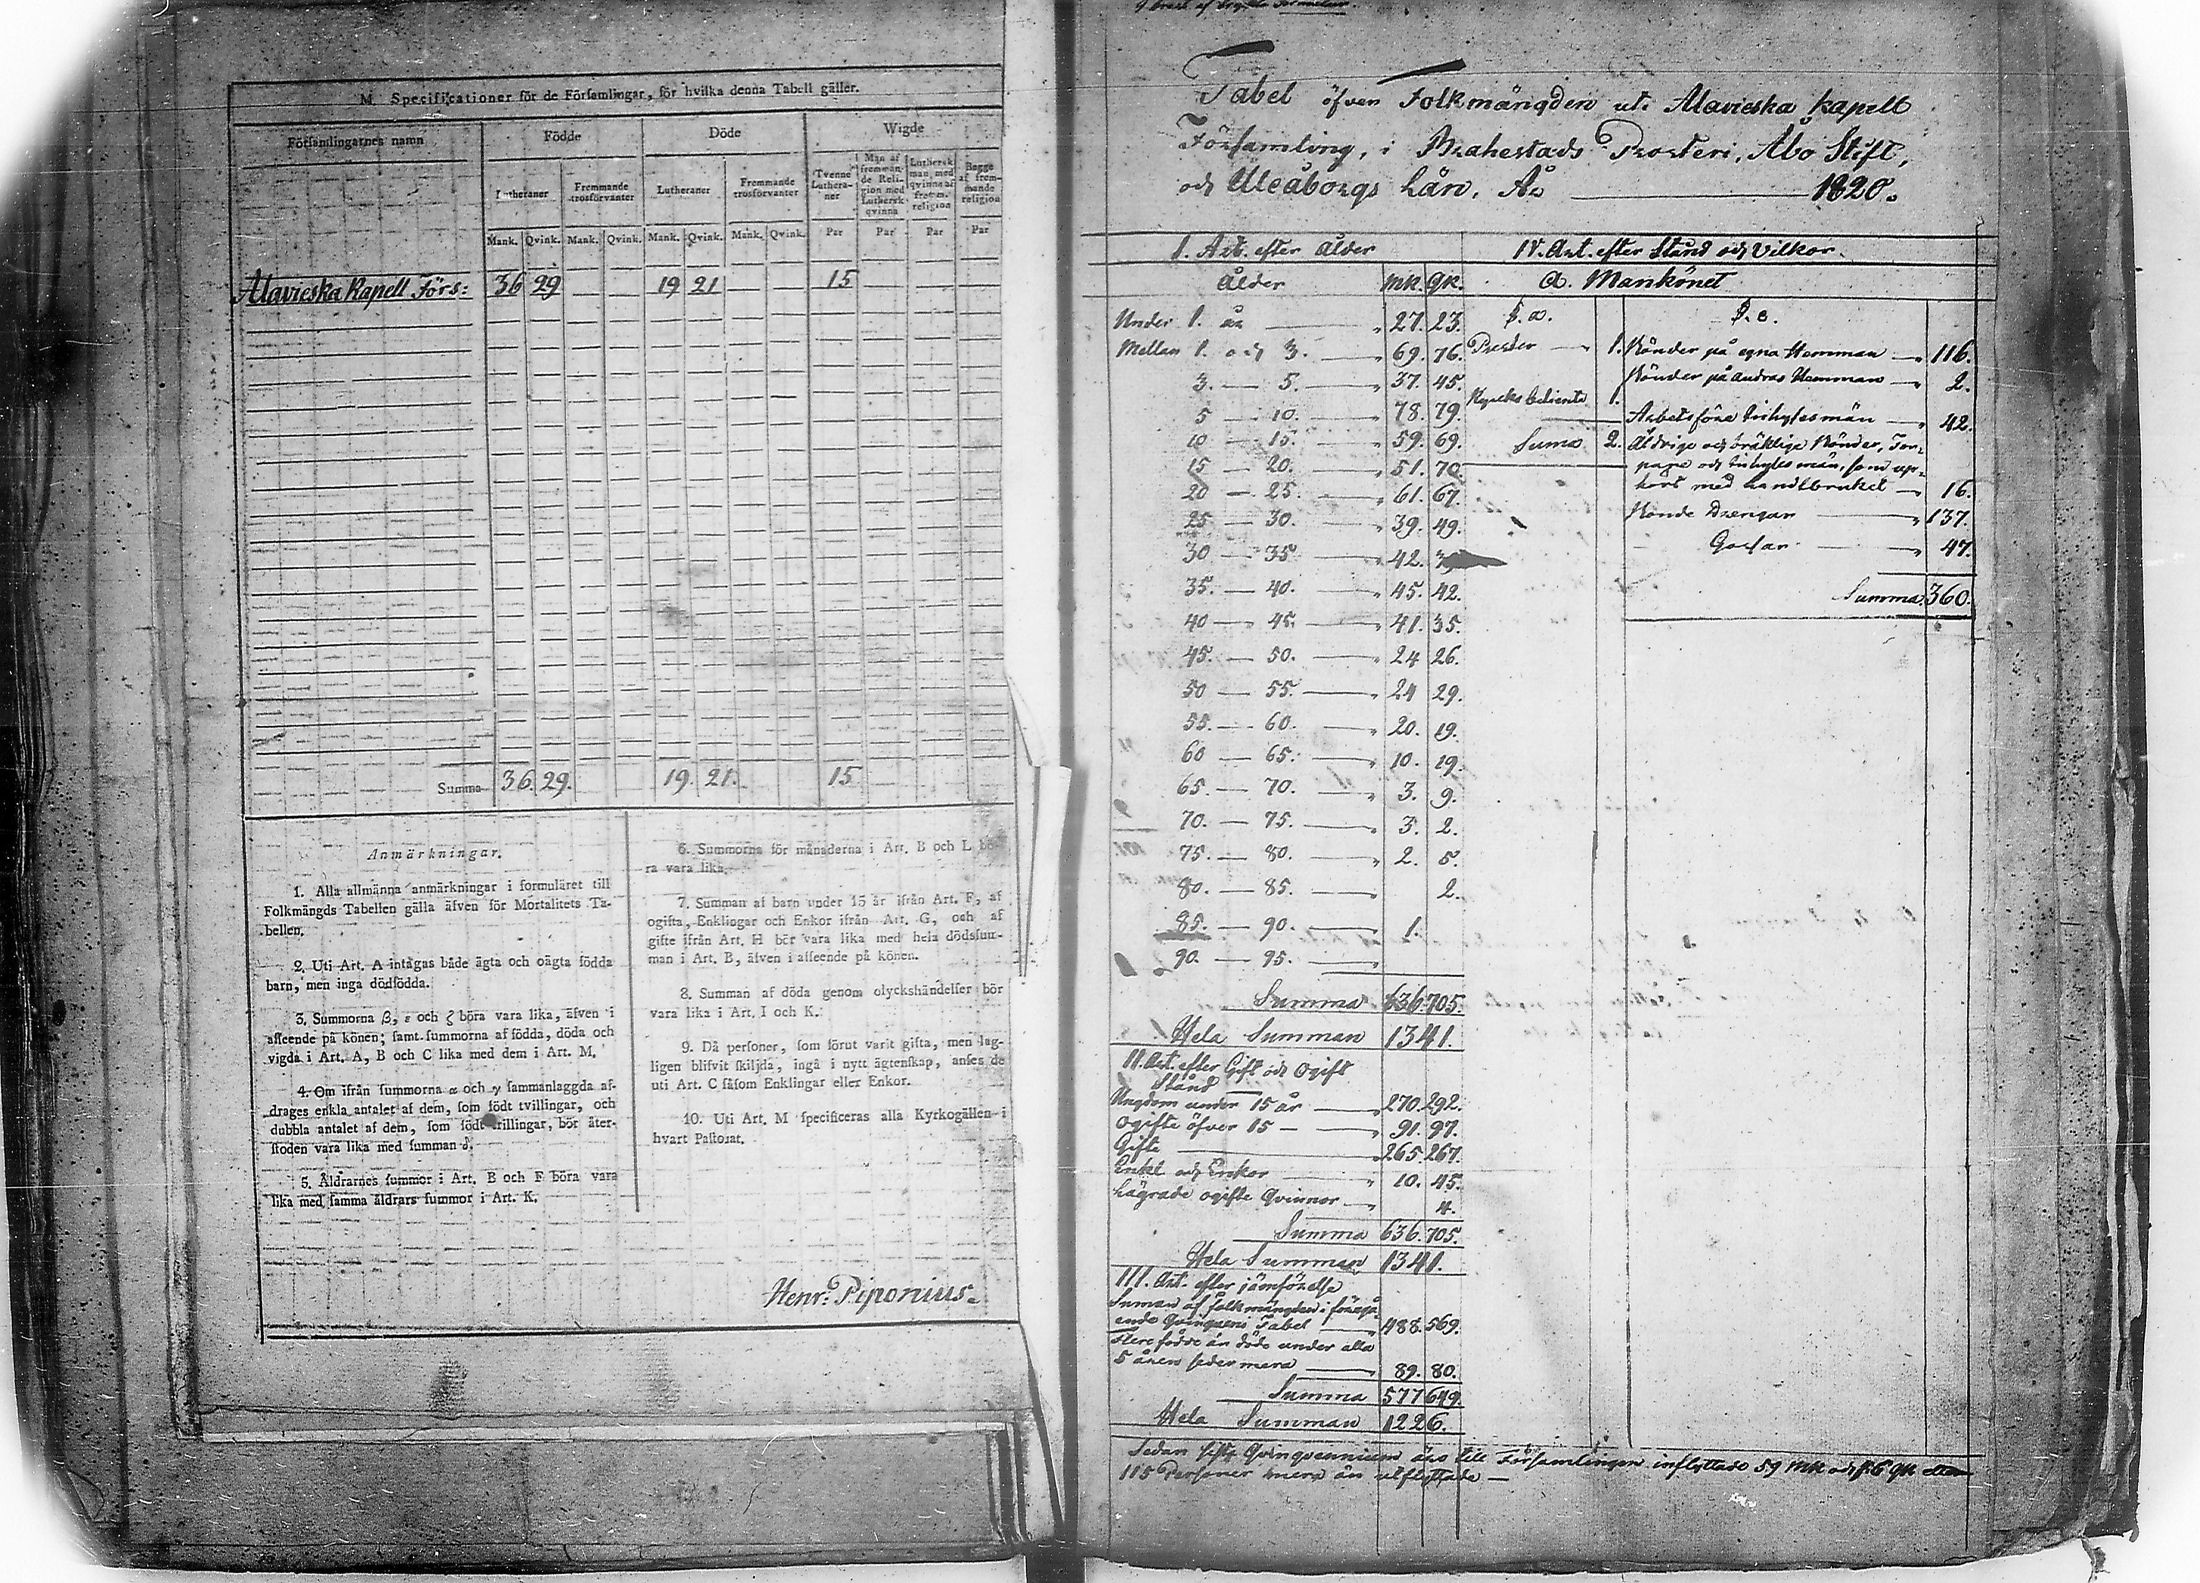 M Specificationer för de Församlingar, för hvilka denna Tabell gäller.
Församlingarnes namn Födde Döde Wigde
Lutheraner Fremmande trosförvanter Lutheraner Fremmande trosförvanter Tvenne Lutheraner Man af fremmande Religion med Luthersk qvinna Luthersk man med qvinna af fremm. religion Begge af fremmande religion
Mank. Qvink. Mank. Qvink. Mank. Qvink. Mank. Qvink. Par Par Par Par
Alavieska Kapell Förs: 36 29 19 21 15
Summa 36. 29. 19. 21. 15
Anmärkningar.
1. Alla allmänna anmärkningar i formuläret till
Folkmängds Tabellen gälla äfven för Mortalitets Ta-
bellen.
2. Uti Art. A intagas både ägta och oägta födda
barn, men inga dödfödda.
3. Summorna β, ε och ζ böra vara lika, äfven i
afseende på könen; samt summorna af födda, döda och
vigda i Art. A, B och C lika med dem i Art. M.
4. Om ifrån summorna α och γ sammanlaggda af-
drages enkla antalet af dem, som födt tvillingar, och
dubbla antalet af dem, som födt trillingar, bör åter-
stoden vara lika med summan δ.
5. Åldrarnes summor i Art. B och F böra vara
lika med samma åldrars summor i Art. K.
6. Summorna för månaderna i Art. B och L bö-
ra vara lika.
7. Summan af barn under 15 år ifrån Art. F, af
ogifta, Enklingar och Enkor ifrån Art. G, och af
gifte ifrån Art. H bör vara lika med hela dödssum-
man i Art. B, äfven i afseende på könen.
8. Summan af döda genom olyckshändelser bör
vara lika i Art. I och K.
9. Då personer, som förut varit gifta, men lag-
ligen blifvit skiljda, ingå i nytt ägtenskap, anses de
uti Art. C såsom Enklingar eller Enkor.
10. Uti Art. M specificeras alla Kyrkogällen i
hvart Pastorat.
Henr: Piponius.
Tabel öfver Folkmängden uti Alavieska kapell
Församling, i Brahestads Prosteri, Åbo Stift,
och Uleåborgs Län, År 1820.
I. Art. efter ålder
ålder mk. qk.
Under 1. år 27. 23.
Mellan 1. och 3. 69. 76.
3. — 5. 37. 45.
5 — 10. 78. 79.
10 — 15. 59. 69.
15 — 20. 51. 70
20 — 25. 61. 67.
25 — 30. 39. 49.
30 — 35 42.
35. — 40. 45. 42.
40 — 45. 41. 35.
45. — 50. 24 26.
50 — 55. 24 29.
55. — 60. 20. 19.
60 — 65. 10. 19.
65. — 70. 3. 9.
70. — 75. 3. 2.
75. — 80. 2. 5.
80. — 85. 2.
85. — 90. 1.
90. — 95.
Summa 636. 705.
Hela Summan 1341.
II. Art. efter Gift och Ogift
Stånd
Ungdom under 15 år 270. 292.
Ogifte öfver 15 — 91. 97.
Gifte 265. 267.
Enkl och Enkor 10. 45.
Lägrade ogifte Qvinnor 4.
Summa 636. 705.
Hela Summan 1341.
III. Art. efter jämförelse
Suman af folkmängden i föregå-
ende Qvinquenii Tabel 488. 569.
Flere födde än döde under alla
5 åren sedermera 89. 80.
Summa 577 649.
Hela Summan 1226.
IV. Art. efter Stånd och Vilkor.
a. Mankönet
§. a.
Prester 1.
Kyrckobetiente 1.
Suma 2.
§. e.
Bönder på egna Hemman 116.
Bönder på andras Hemman 2.
Arbetsföre Inhyses män 42.
Åldrige och bräklige Bönder, Tor-
pare och Inhyses män, som up-
hört med Landtbruket 16.
Bonde Drengar 137.
Gossar 47
Summa 360.
Sedan sista Qvinquennium äro till Församlingen inflyttade 59 mk och 56 qk eller
115 Personer mera än utflyttade —